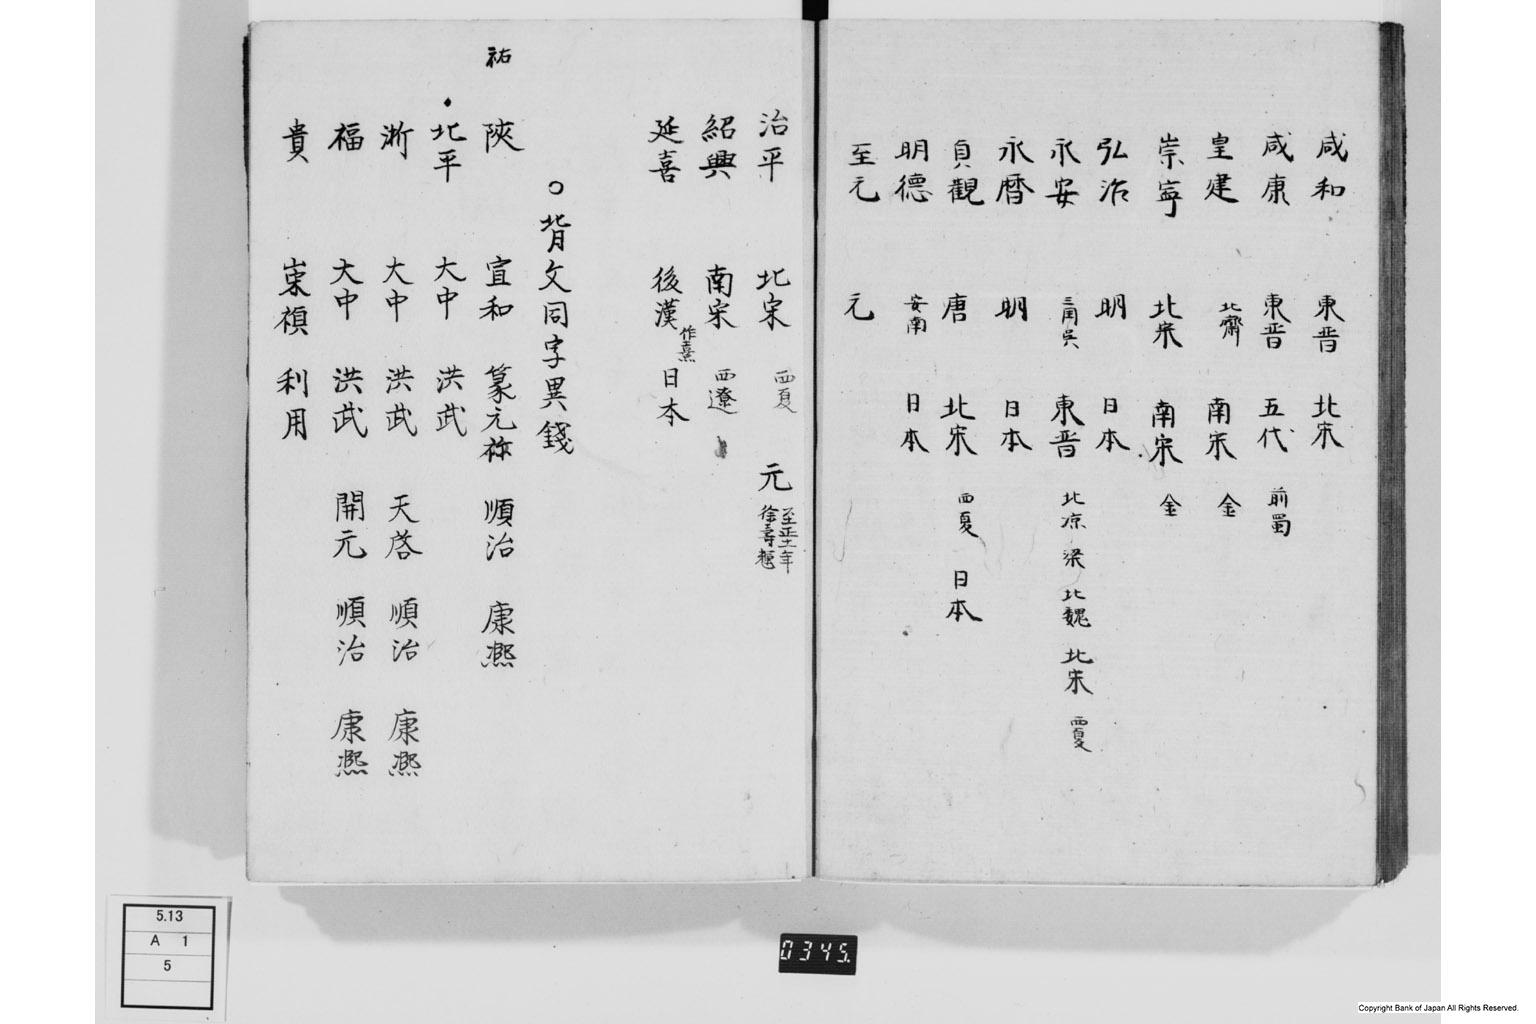 咸和 東晋 北宋
咸康 東晋 五代 前蜀
皇建 北齊 南宋 金
崇寧 北宋 南宋 金
弘治 明 日本
永安 三国呉 東晋 北凉 梁 北魏 北宋 西夏
永暦 明 日本
貞觀 唐 北宋 西夏 日本
明德 安南 日本
至元 元
治平 北宋 西夏 元 至正十一年 徐壽輝
紹興 南宋 西遼
延喜 後漢 作熹 日本
○背文同字異錢
祐
陝 宣和 篆元祐 順治 康熙
北平 大中 洪武
浙 大中 洪武 天啓 順治 康熙
福 大中 洪武 開元 順治 康熙
貴 崇禎 利用
5.13
A 1
5
0345.
Copyright Bank of Japan All Rights Reserved.